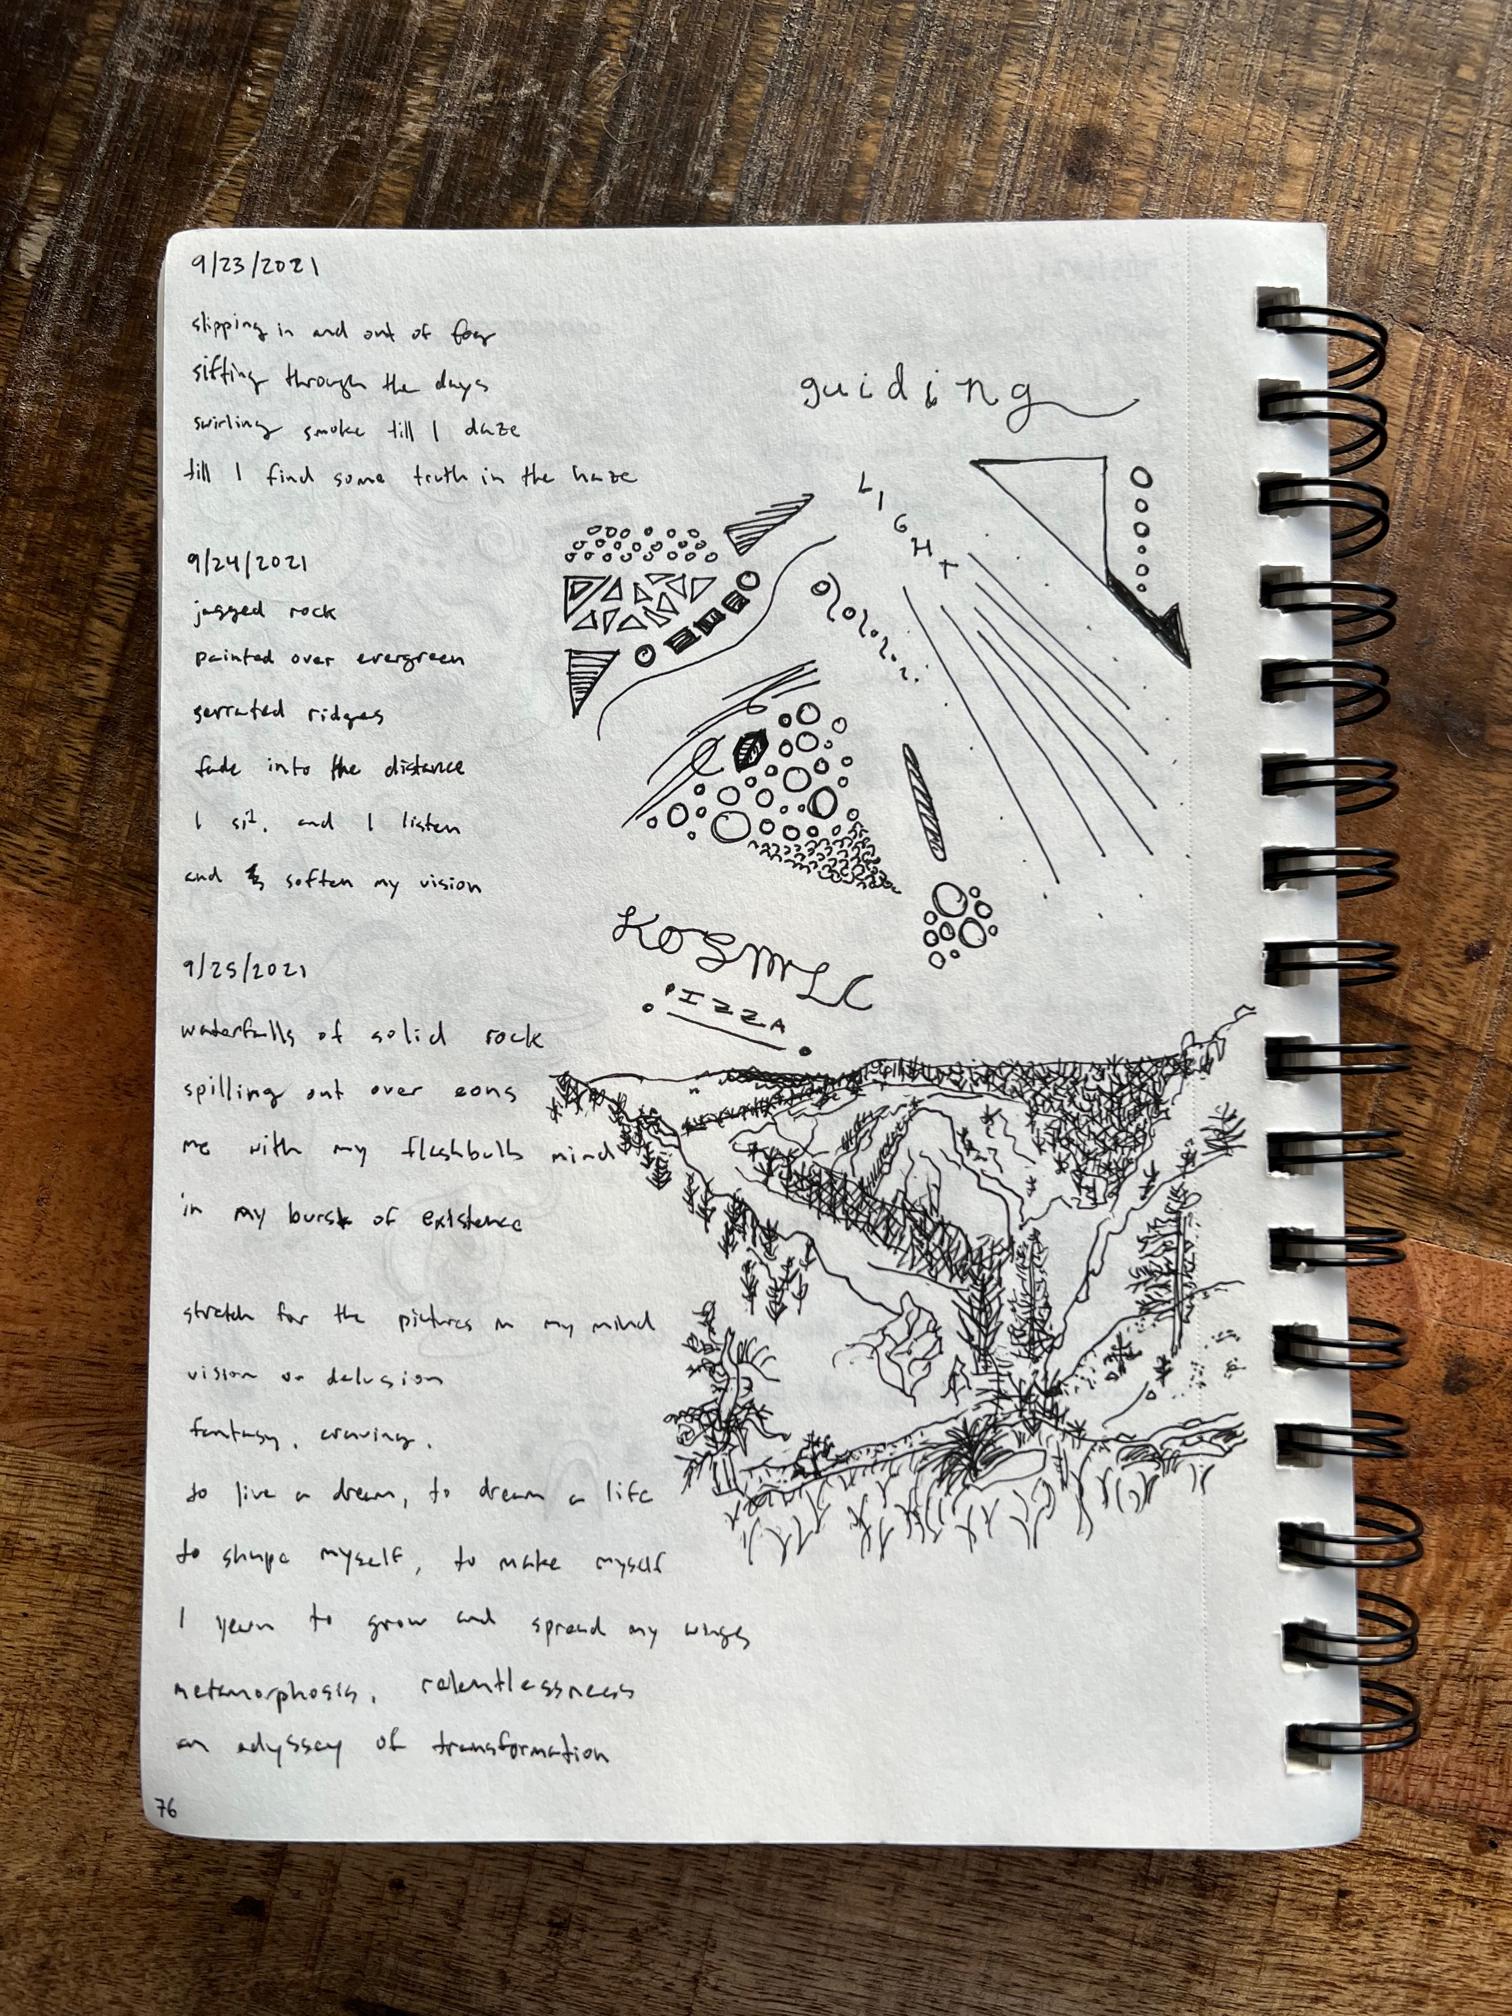 9/23/2021
slipping in and out of fog
sifting through the days
swirling smoke till I daze
till I find some truth in the haze
9/24/2021
jagged rock
painted over evergreen
serrated ridges
fade into the distance
I sit, and I listen
and soften my vision
9/25/2021
waterfalls of solid rock
spilling out over eons
me with my flashbulb mind
in my burst of existence
stretch for the pictures in my mind
vision or delusion
fantasy, craving,
to live a dream, to dream a life
to shape myself, to make myself
I yearn to grow and spread my wings
metamorphosis, relentlessness
an odyssey of transformation
76
guiding
LIGHT
KOSMIC
PIZZA